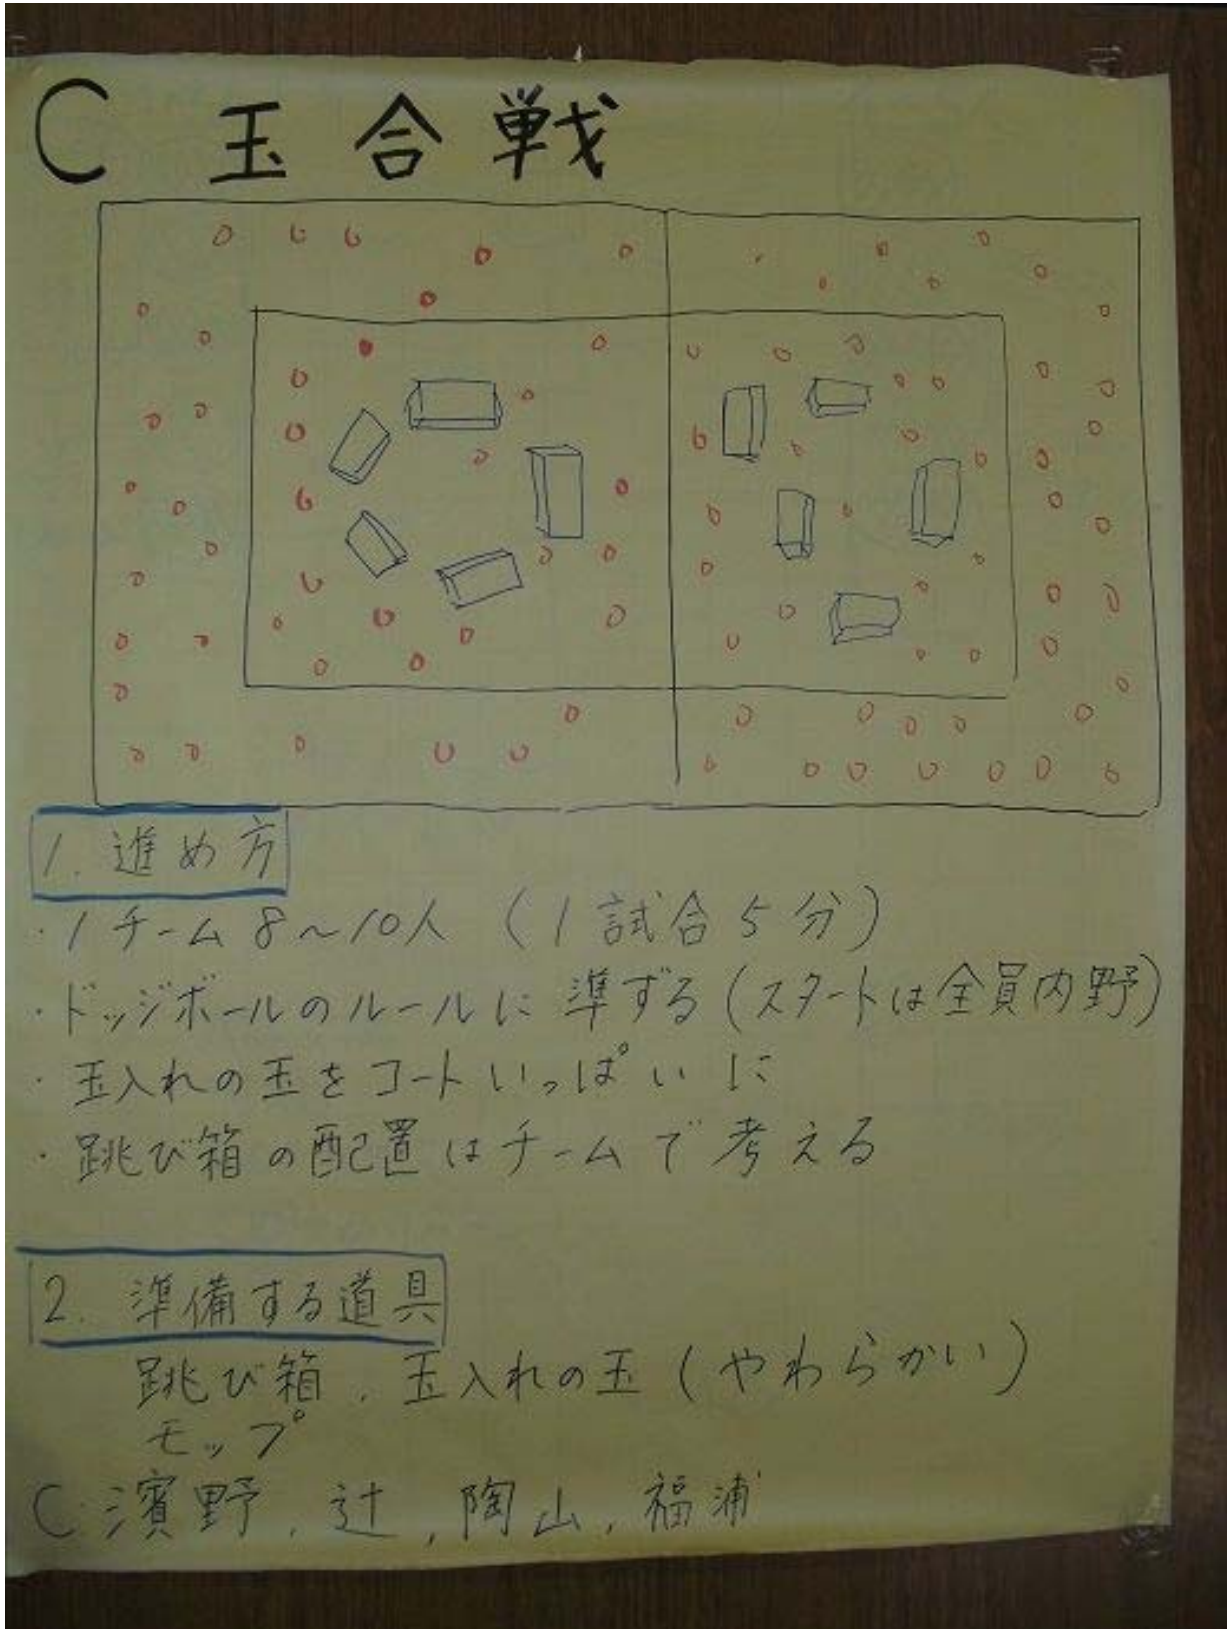 C 玉合戦
1. 進め方
・1チーム8～10人（1試合5分）
・ドッジボールのルールに準ずる（スタートは全員内野）
・玉入れの玉をコートいっぱいに
・跳び箱の配置はチームで考える
2. 準備する道具
跳び箱、玉入れの玉（やわらかい）
モップ
C:濱野,辻,陶山,福浦